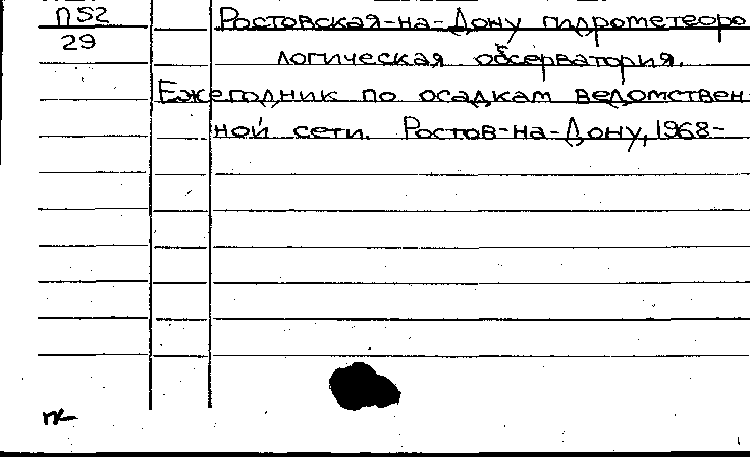 П52 Ростовская-на-Дону гидрометеоро
29 логическая обсерватория.
Ежегодник по осадкам ведомствен-
ной сети. Ростов-на-Дону, 1968-